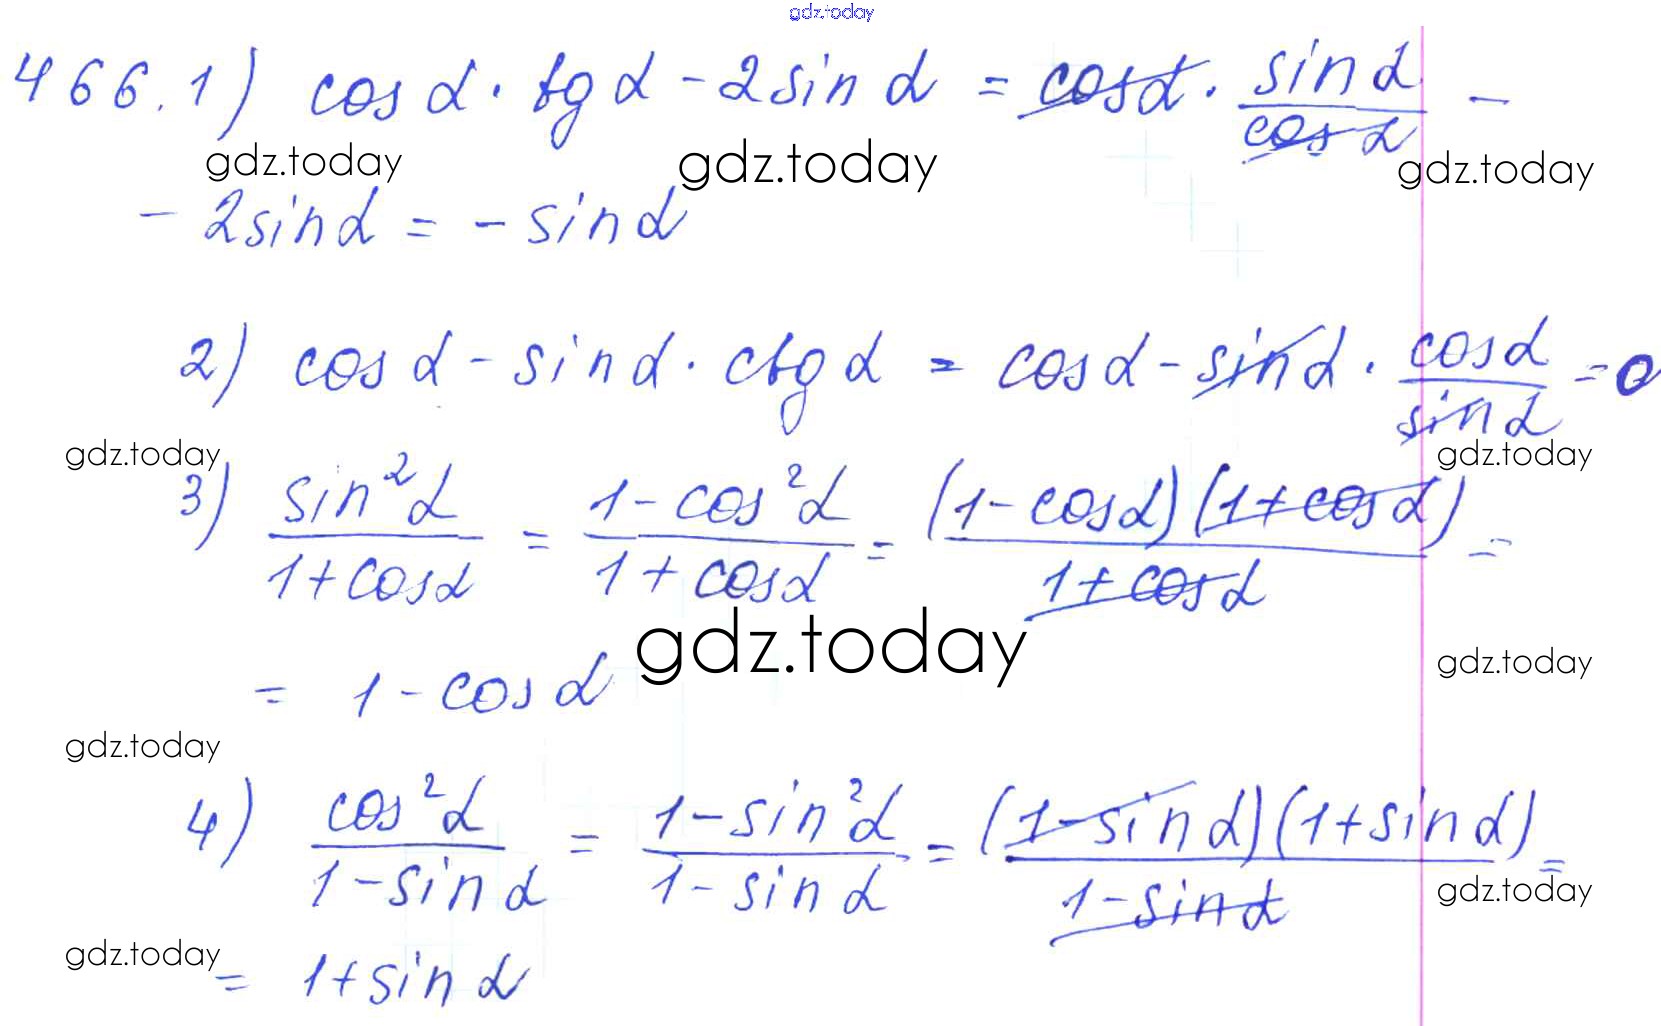 gdz.today
466. 1) cos α · tg α - 2 sin α = cos α · sin α / cos α -
gdz.today gdz.today gdz.today
- 2 sin α = - sin α
2) cos α - sin α · ctg α = cos α - sin α · cos α / sin α = 0
gdz.today gdz.today
3) sin² α / 1 + cos α = 1 - cos² α / 1 + cos α = (1 - cos α)(1 + cos α) / 1 + cos α =
gdz.today gdz.today
= 1 - cos α
gdz.today
4) cos² α / 1 - sin α = 1 - sin² α / 1 - sin α = (1 - sin α)(1 + sin α) / 1 - sin α =
gdz.today
gdz.today
= 1 + sin α